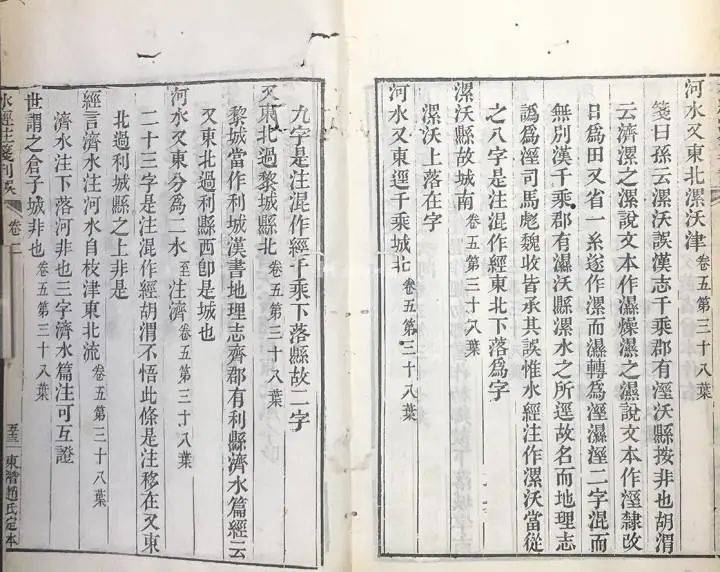 河水又東北漯沃津
箋曰孫云漯沃誤漢志千乘郡有溼沃縣按非也胡渭
云濟漯之漯說文本作濕燥濕之濕說文本作溼隸改
日為田又省一糸遂作漯而濕轉為溼濕溼二字混而
無別漢千乘郡有濕沃縣漯水之所逕故名而地理志
譌為溼司馬彪魏收皆承其誤惟水經注作漯沃當從
之八字是注混作經東北下落為字
漯沃縣故城南卷五第三十八葉
漯沃上落在字
河水又東逕千乘城北卷五第三十八葉
九字是注混作經千乘下落縣故二字
又東北過黎城縣北卷五第三十八葉
黎城當作利城漢書地理志齊郡有利縣濟水篇經云
又東北過利縣西卽是城也
河水又東分為二水至注濟卷五第三十八葉
二十三字是注混作經胡渭不悟此條是注移在又東
北過利城縣之上非是
經言濟水注河水自枝津東北流卷五第三十八葉
濟水注下落河非也三字濟水篇注可互證
世謂之倉子城非也卷五第三十八葉
水經注箋刊誤 卷二 東潛趙氏定本